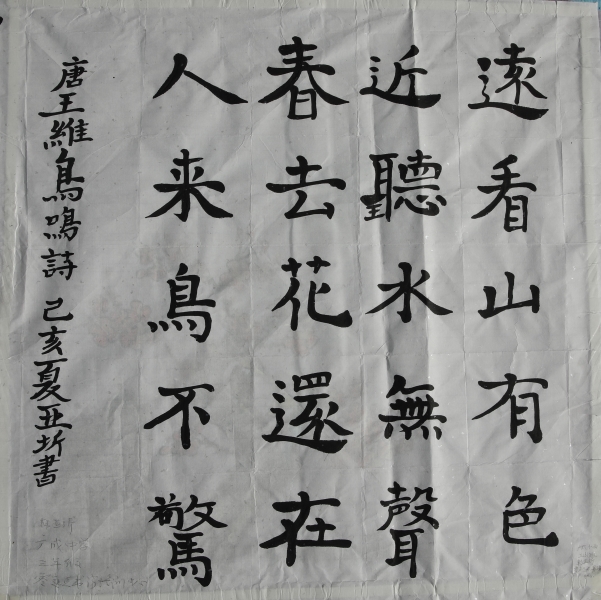 遠看山有色
近聽水無聲
春去花還在
人来鳥不驚
唐王維鳥鳴詩 己亥夏亚圻書